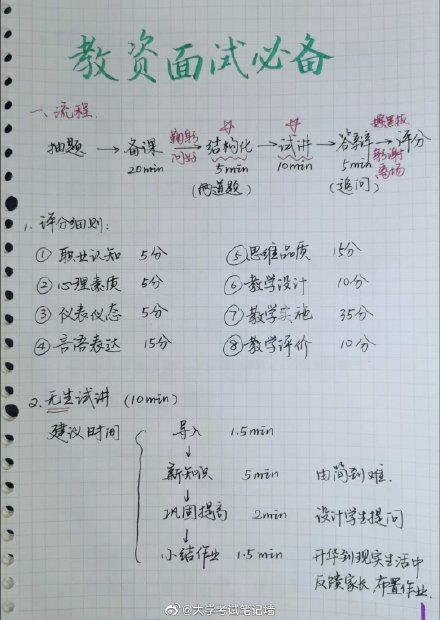 教资面试必备
一、流程.
抽题 → 备课 鞠躬问好 → 结构化 → 试讲 → 答辩 擦黑板 鞠躬谢离场 → 评分
20min 5min 10min 5min
(两道题) (追问)
1. 评分细则:
① 职业认知 5分 ⑤ 思维品质 15分
② 心理素质 5分 ⑥ 教学设计 10分
③ 仪表仪态 5分 ⑦ 教学实施 35分
④ 言语表达 15分 ⑧ 教学评价 10分
2. 无生试讲 (10min)
建议时间 导入 1.5min
↓
新知识 5min 由简到难.
↓
巩固提高 2min 设计学生提问
↓
小结作业 1.5min 升华到现实生活中
反馈家长,布置作业.
@大学考试笔记墙